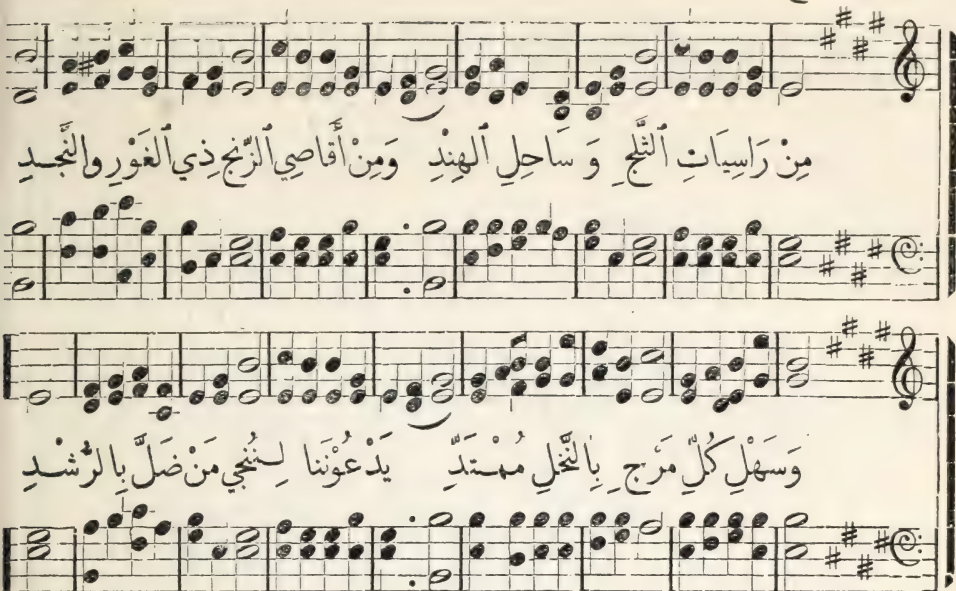 مِنْ رَاسِيَاتِ ٱلثَّلْجِ وَ سَاحِلِ ٱلهِنْدِ وَمِنْ أَقَاصِي ٱلزِّنْجِ ذِي ٱلغَوْرِ وٱلنَّجْدِ
وَسَهْلِ كُلِّ مَرْجٍ بِٱلنَّخْلِ مُمْتَدِّ يَدْعُوْنَنا لِنُنْجِي مَنْ ضَلَّ بِٱلرُّشْدِ